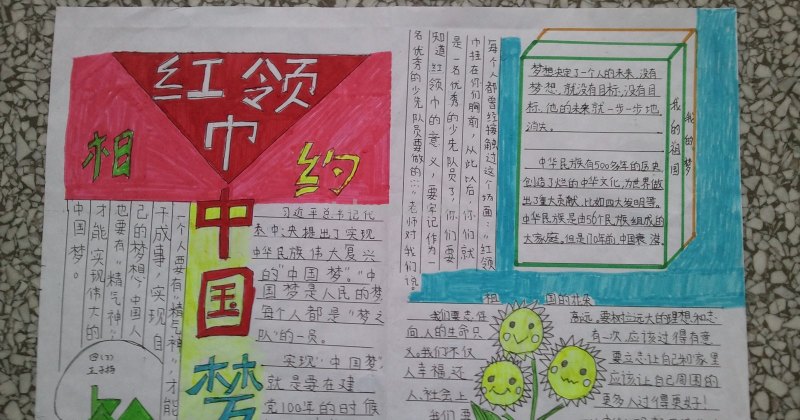 红领巾
相约
中国梦
一个人要有“精气神”，才能
干成事，实现自
己的梦想，中国人
也要有“精气神”
才能实现伟大的
中国梦。
习近平总书记代
表中央提出了实现
中华民族伟大复兴
的“中国梦”“中
国梦是人民的梦
每个人都是“梦之
队”的一员。
实现“中国梦”
就是要在建
党100年的时候
每个人都曾经接触过这个场面：“红领
巾挂在你们胸前，从此以后，你们就
是一名优秀的少先队员了，你们要
知道红领巾的意义，要牢记作为一
名优秀的少先队员要做的……”老师对我们说。
梦想决定了一个人的未来，没有
梦想，就没有目标，没有目
标，他的未来就一步一步地
消失。
中华民族有500多年的历史
创造了烂的中华文化，为世界做
出了重大贡献，比如四大发明等。
中华民族是由56个民族组成的
大家庭，但是170年前，中国衰
我的祖国
我的梦
祖国的未来
我们要志在
向人的生命只
义。我们不仅
人幸福，还
人，社会上
我们要
高远。要树立远大的理想和志
有一次，应该过得有意
要立志让自己和家里
应该让自己周围的
更多人过得更好！